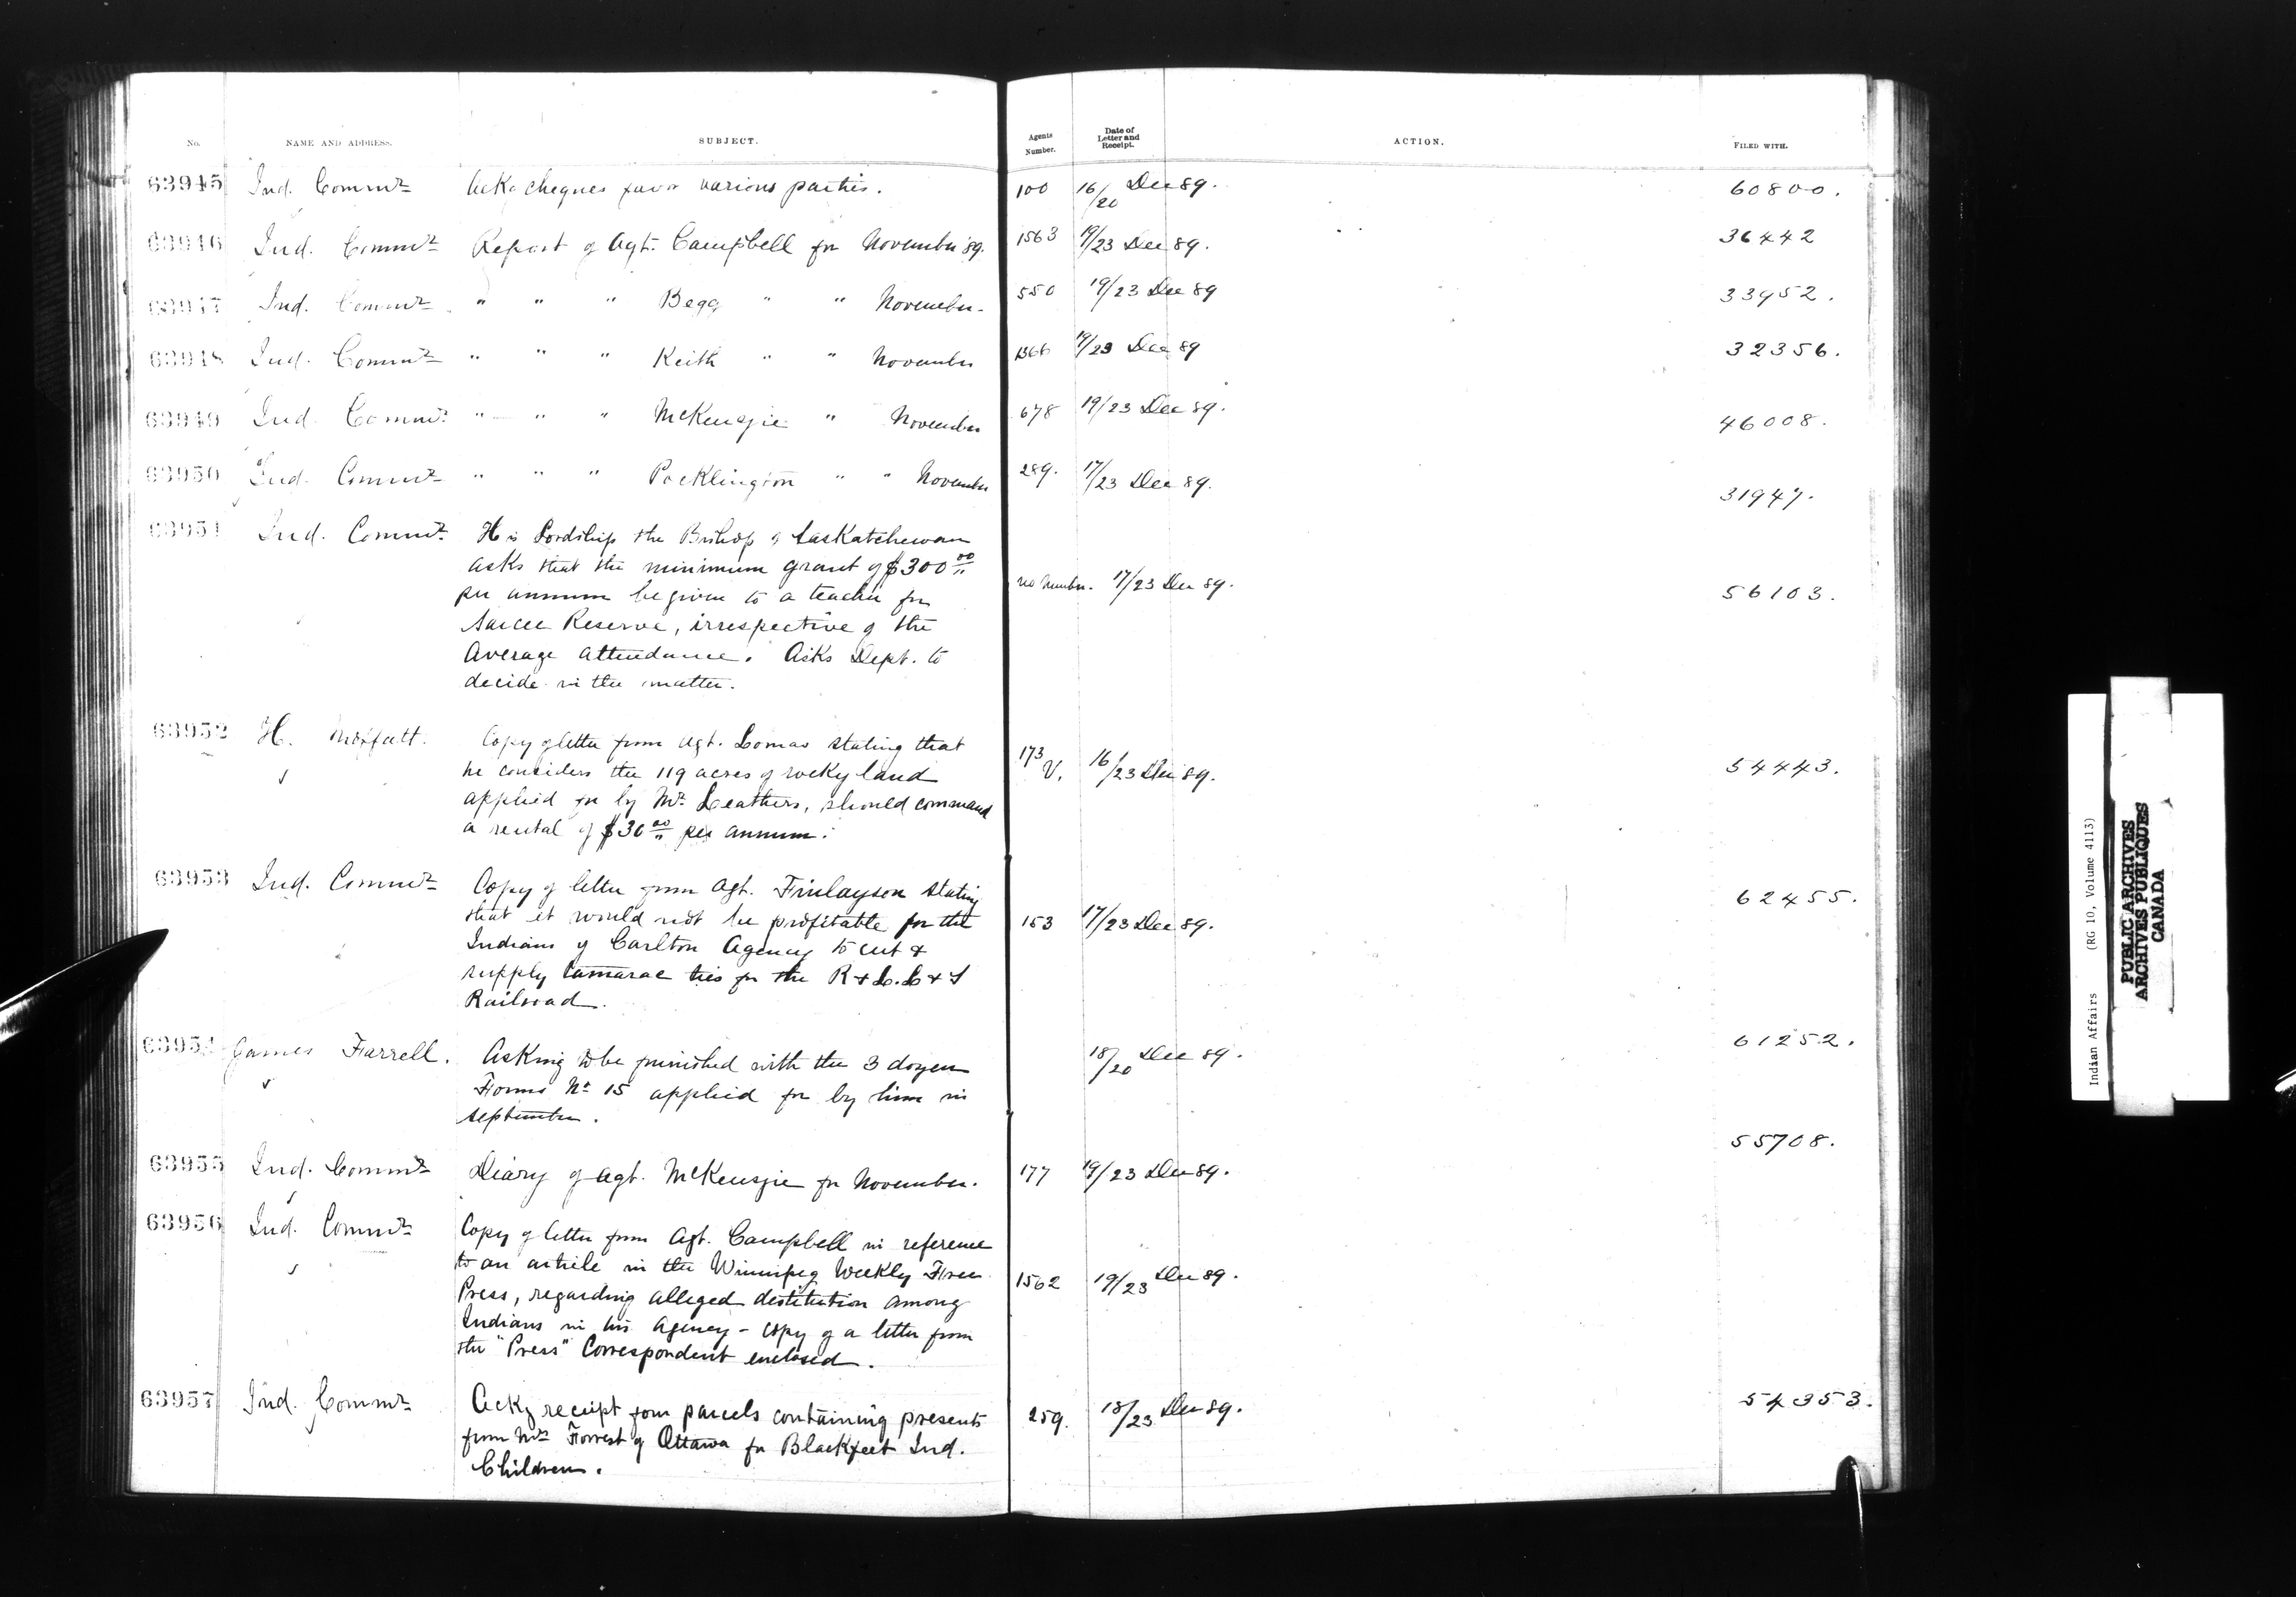 No. NAME AND ADDRESS. SUBJECT. Agents Number. Date of Letter and Receipt. ACTION. FILED WITH.
63945 Ind. Commr Acks cheques favor various parties. 100 16/20 Dec 89. 60800.
63946 Ind. Commr Report of Agt. Campbell for November '89. 1563 19/23 Dec 89. 36442
63947 Ind. Commr " " " Begg " " November. 550 19/23 Dec 89 33952.
63948 Ind. Commr " " " Keith " " November 1366 19/23 Dec 89 32356.
63949 Ind. Commr " " " McKenzie " November 678 19/23 Dec 89. 46008.
63950 Ind. Commr " " " Pocklington " " November 289. 17/23 Dec 89. 31947.
63951 Ind. Commr His Lordship the Bishop of Saskatchewan
asks that the minimum grant of $300 00
per annum be given to a teacher for no number. 17/23 Dec 89. 56103.
Sarcee Reserve, irrespective of the
Average attendance. Asks Dept. to
decide in the matter.
63952 H. Moffatt. Copy of letter from Agt. Lomas stating that
he considers the 119 acres of rocky land 173 V. 16/23 Dec 89. 54443.
applied for by Mr. Leathers, should command
a rental of $30 00 per annum.
63953 Ind. Commr Copy of letter from Agt. Finlayson stating 62455.
that it would not be profitable for the 153 17/23 Dec 89.
Indians of Carlton Agency to cut &
supply tamarac ties for the R & L. L & S
Railroad.
63954 James Farrell. Asking to be furnished with the 3 dozen 18/20 Dec 89. 61252.
Forms No 15 applied for by him in
September.
63955 Ind. Commr Diary of Agt. McKenzie for November. 177 19/23 Dec 89. 55708.
63956 Ind. Commr Copy of letter from Agt. Campbell in reference
to an article in the Winnipeg Weekly Free 1562 19/23 Dec 89.
Press, regarding alleged destitution among
Indians in his Agency - copy of a letter from
the "Press" Correspondent enclosed.
63957 Ind. Commr Ackg receipt four parcels containing presents 259. 18/23 Dec 89. 54353.
from Mrs Forrest of Ottawa for Blackfeet Ind.
Children.
Indian Affairs (RG 10, Volume 4113)
PUBLIC ARCHIVES
ARCHIVES PUBLIQUES
CANADA